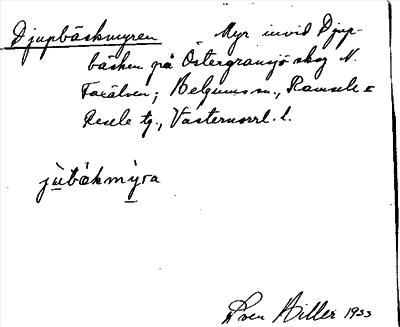 Djupbäckmyren Myr invid Djup-
bäcken på Östergransjö skog N.
Faxälven; Bodgums sn., Ramsele o
Resele tg., Västernorrl. l.
jùbäkmỳra
Sven Hiller 1933